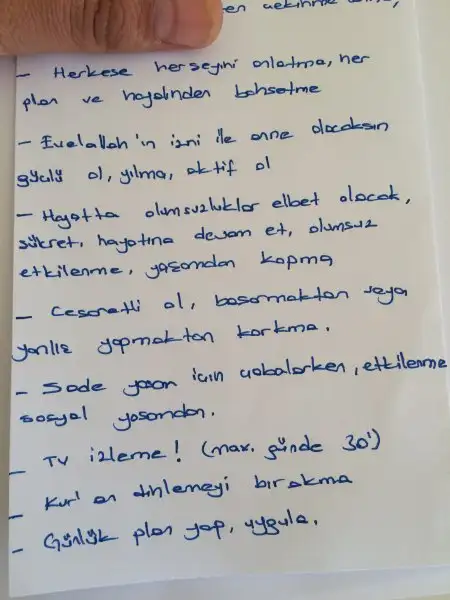 en çekinme
- Herkese herşeyini anlatma, her
plan ve hayalinden bahsetme
- Evelallah'ın izni ile anne olacaksın
güçlü ol, yılma, aktif ol
- Hayatta olumsuzluklar elbet olacak,
şükret, hayatına devam et, olumsuz
etkilenme, yaşamdan kopma
- Cesaretli ol, başarmaktan veya
yanlış yapmaktan korkma.
- Sade yaşam için çabalarken, etkilenme
sosyal yaşamdan.
- TV izleme! (max. günde 30')
- Kur'an dinlemeyi bırakma
- Günlük plan yap, uygula.